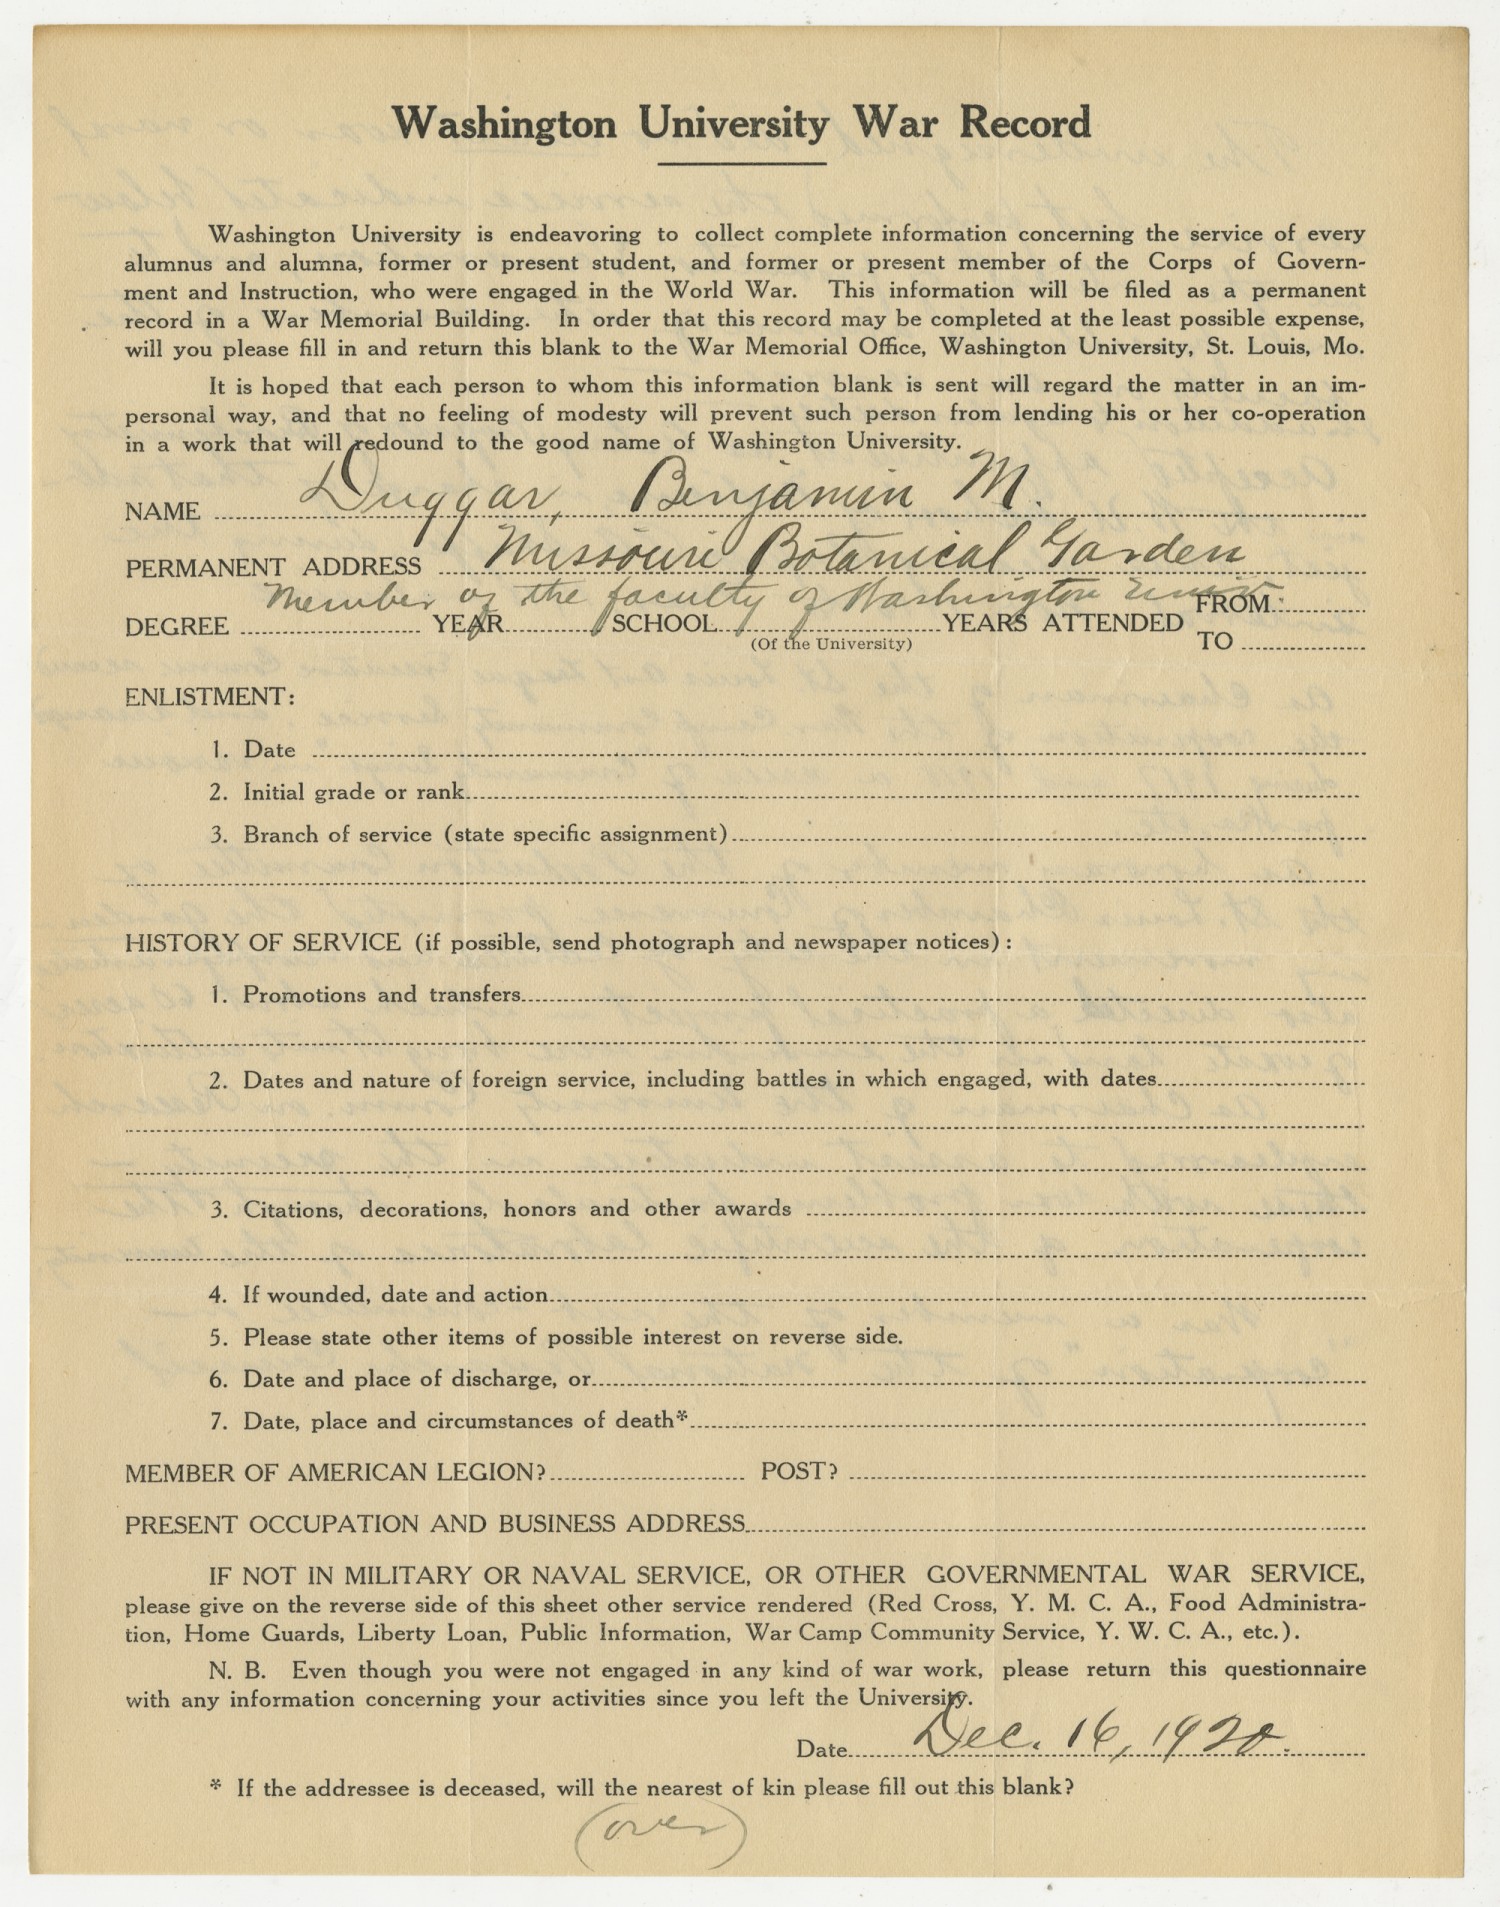 Washington University War Record
Washington University is endeavoring to collect complete information concerning the service of every
alumnus and alumna, former or present student, and former or present member of the Corps of Govern-
ment and Instruction, who were engaged in the World War. This information will be filed as a permanent
record in a War Memorial Building. In order that this record may be completed at the least possible expense,
will you please fill in and return this blank to the War Memorial Office, Washington University, St. Louis, Mo.
It is hoped that each person to whom this information blank is sent will regard the matter in an im-
personal way, and that no feeling of modesty will prevent such person from lending his or her co-operation
in a work that will redound to the good name of Washington University.
NAME Duggar, Benjamin M.
PERMANENT ADDRESS Missouri Botanical Garden
Member of the faculty of Washington Univ.
DEGREE YEAR SCHOOL YEARS ATTENDED FROM
(Of the University) TO
ENLISTMENT:
1. Date
2. Initial grade or rank
3. Branch of service (state specific assignment)
HISTORY OF SERVICE (if possible, send photograph and newspaper notices):
1. Promotions and transfers
2. Dates and nature of foreign service, including battles in which engaged, with dates
3. Citations, decorations, honors and other awards
4. If wounded, date and action
5. Please state other items of possible interest on reverse side.
6. Date and place of discharge, or
7. Date, place and circumstances of death*
MEMBER OF AMERICAN LEGION? POST?
PRESENT OCCUPATION AND BUSINESS ADDRESS
IF NOT IN MILITARY OR NAVAL SERVICE, OR OTHER GOVERNMENTAL WAR SERVICE,
please give on the reverse side of this sheet other service rendered (Red Cross, Y. M. C. A., Food Administra-
tion, Home Guards, Liberty Loan, Public Information, War Camp Community Service, Y. W. C. A., etc.).
N. B. Even though you were not engaged in any kind of war work, please return this questionnaire
with any information concerning your activities since you left the University.
Date Dec. 16, 1920.
* If the addressee is deceased, will the nearest of kin please fill out this blank?
(over)